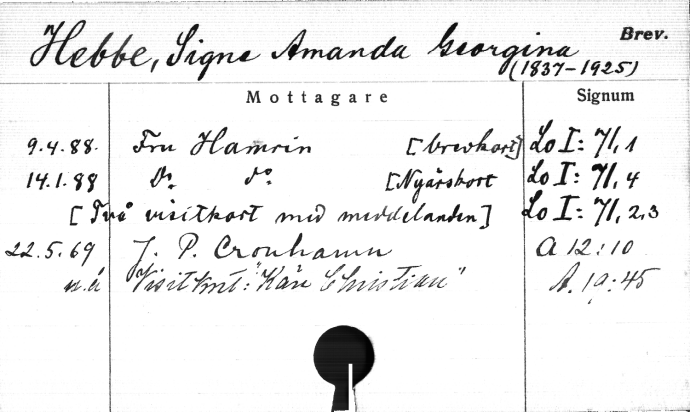 Hebbe, Signe Amanda Georgina Brev.
(1837-1925)
Mottagare Signum
9.4.88. Fru Hamrin [brevkort] Lo I: 71,1
14.1.88 do. do. [Nyårskort Lo I: 71,4
[Två visitkort med meddelanden] Lo I: 71,2,3
22.5.69 J. P. Cronhamn A 12:10
u.å Visitkort: "Käre Christian" A. 19:45